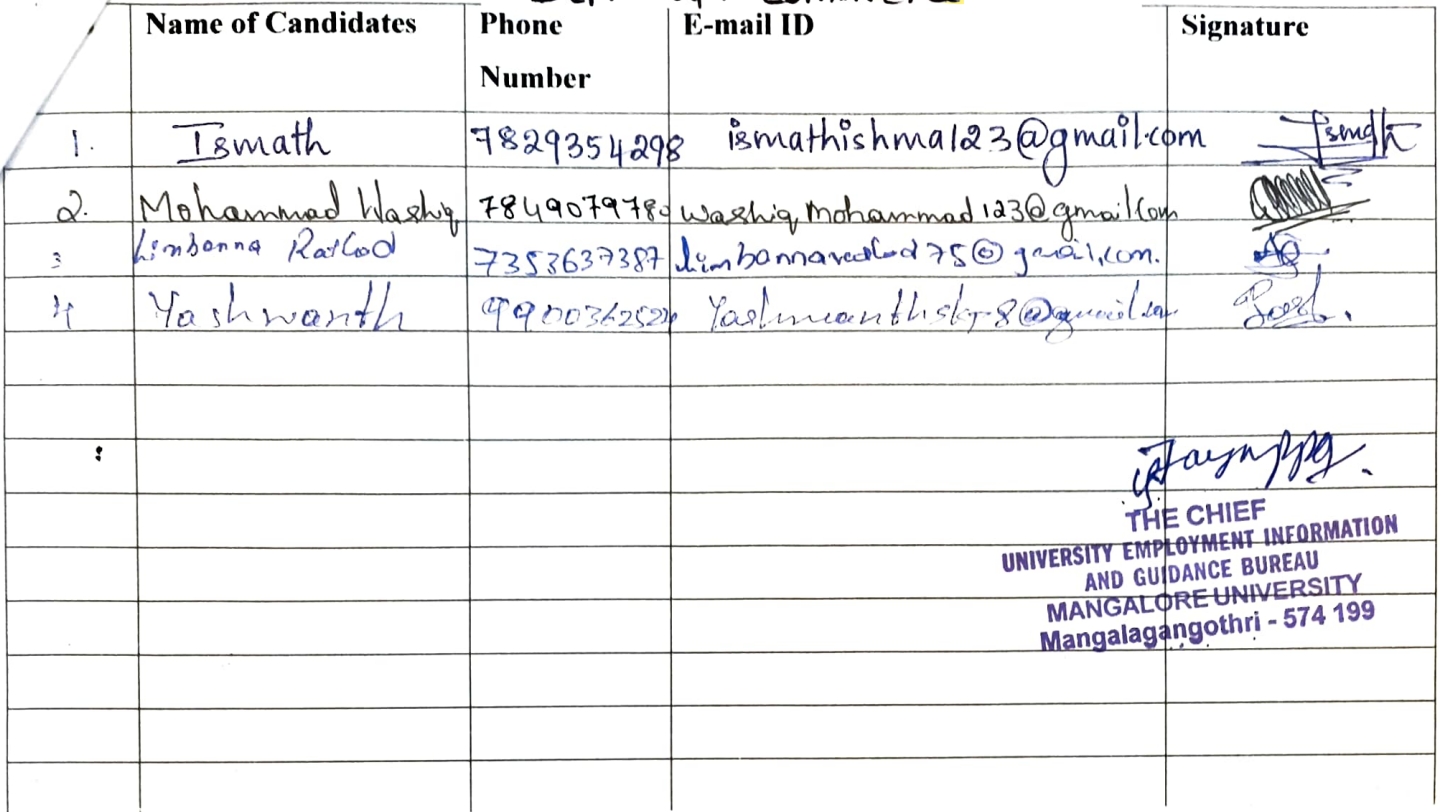 Name of Candidates Phone Number E-mail ID Signature
1. Ismath 7829354298 ismathishma123@gmail.com Ismath
2. Mohammad Washiq 7849079780 washiqmohammad123@gmail.com
3 Limbanna Rathod 7353637387
4 Yashwanth
THE CHIEF
UNIVERSITY EMPLOYMENT INFORMATION
AND GUIDANCE BUREAU
MANGALORE UNIVERSITY
Mangalagangothri - 574 199